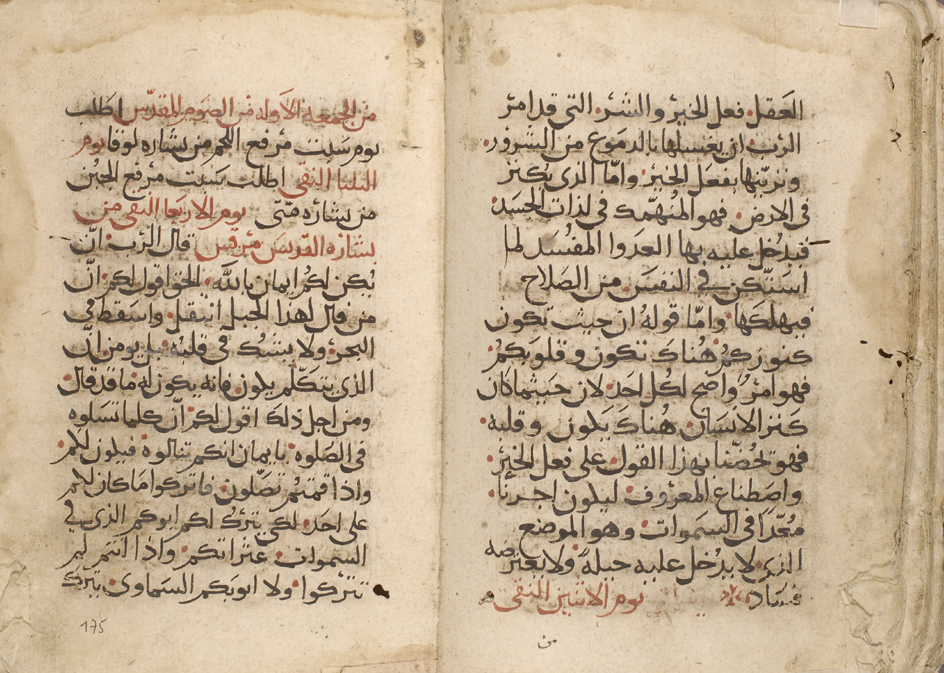 العقل فعل الخير والشر التي قد امر
الرب ان يغسلها بالدموع من الشرور
ونزينها بفعل الخير واما الذي يكنز
في الارض فهو المنهمك في لذات الجسد
فيدخل عليه بها العدوا المفسد لما
استكن في النفس من الصلاح
فيهلكها واما قوله ان حيث تكون
كنوزكم هناك تكون وقلوبكم
فهو امر واضح لكل احد لان حيثما كان
كنز الانسان هناك يكون وقلبه
فهو تحضنا بهذا القول على فعل الخير
واصطناع المعروف ليكون اجرنا
معدا في السموات وهو الموضع
الذي لا يدخل عليه حيله ولا يعترضه
فساد يوم الاثنين النقي
من
من الجمعه الاوله من الصوم المقدس اطلب
يوم سبت مرفع اللحم من بشاره لوقا يوم
الثلثا النقي اطلب سبت مرفع الجبن
من بشاره متى يوم الاربعا النقي من
بشاره القديس مرقس قال الرب ان
يكن لكم ايمان بالله الحق اقول لكم ان
من قال لهذا الجبل انتقل واسقط في
البحر ولا يشك في قلبه بل يومن ان
الذي يتكلم يكون فانه يكون له ما قد قال
ومن اجل ذلك اقول لكم ان كلما تسلوه
في الصلوه بايمان انكم تنالوه فيكون لكم
واذا قمتم تصلون فاتركوا ما كان لكم
على احد لكي يترك لكم ابوكم الذي في
السموات عثراتكم واذا انتم لم
تتركوا ولا ابوبكم السماوي يترك
175